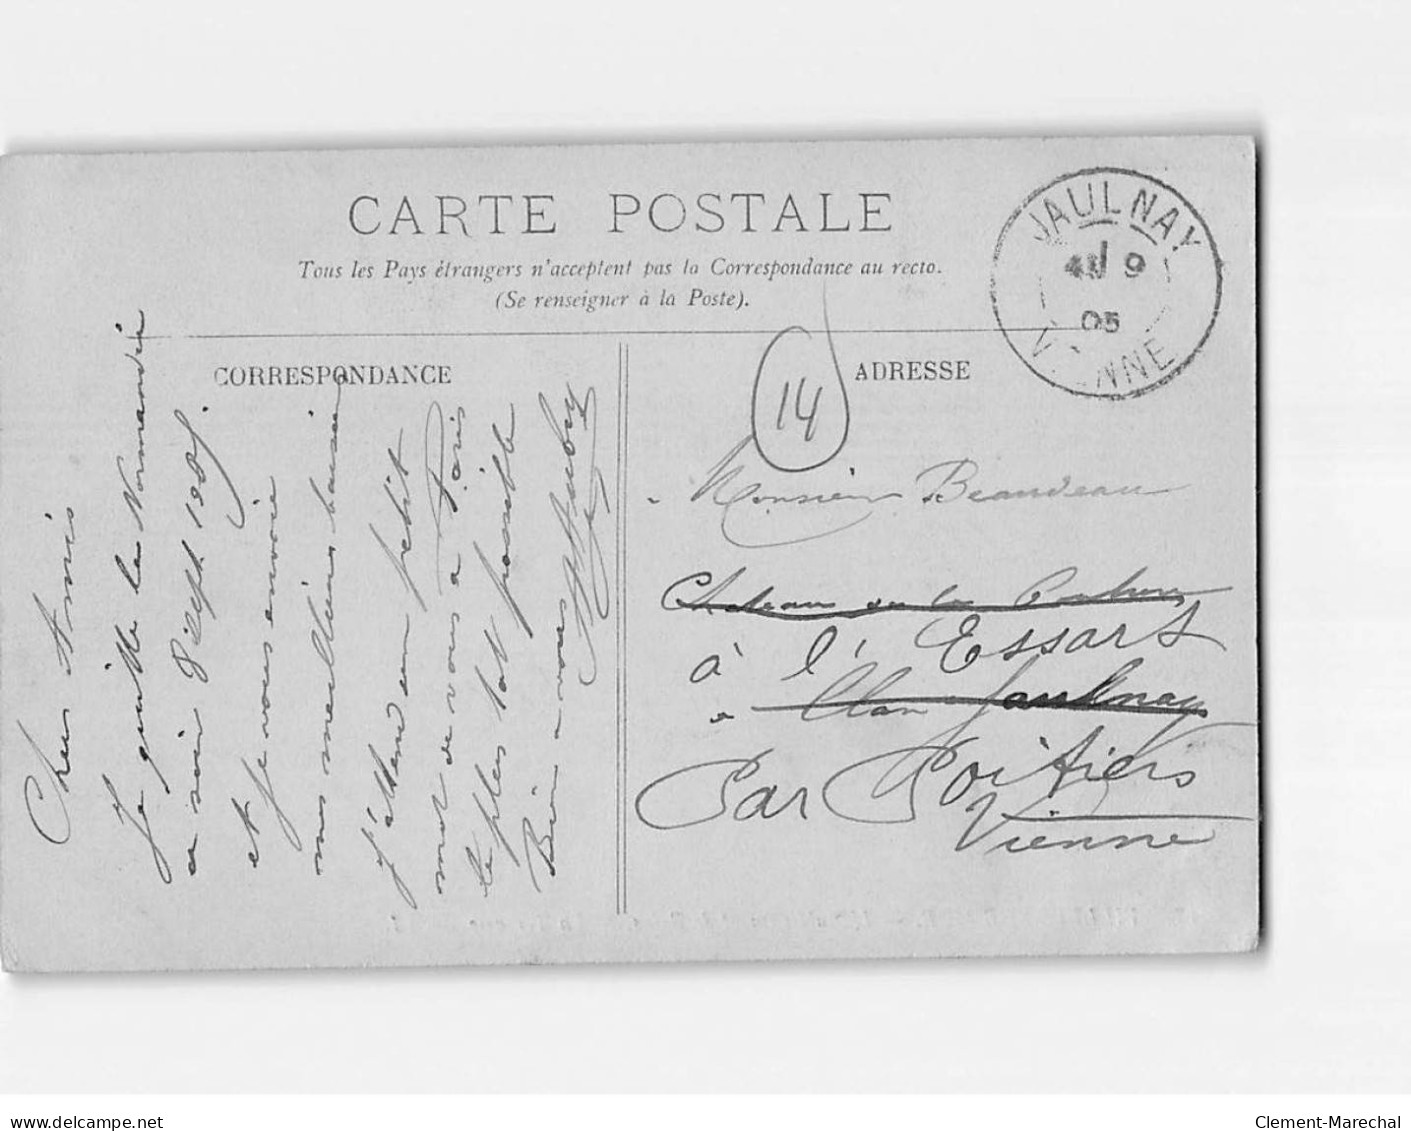 CARTE POSTALE
Tous les Pays étrangers n'acceptent pas la Correspondance au recto.
(Se renseigner à la Poste).
JAULNAY
9
05
VIENNE
CORRESPONDANCE
Chers Amis
Je quitte la Normandie
ce soir 8 Sept. 1905.
et je vous envoie
mes meilleurs baisers
J'attend un petit
mot de vous a Paris
le plus tôt possible
Bien a vous
ADRESSE
14
Monsieur Beaudeau
Chateau de la
à l'Essart
Clan Jaulnay
Par Poitiers
Vienne
delcampe.net
Clement-Marechal